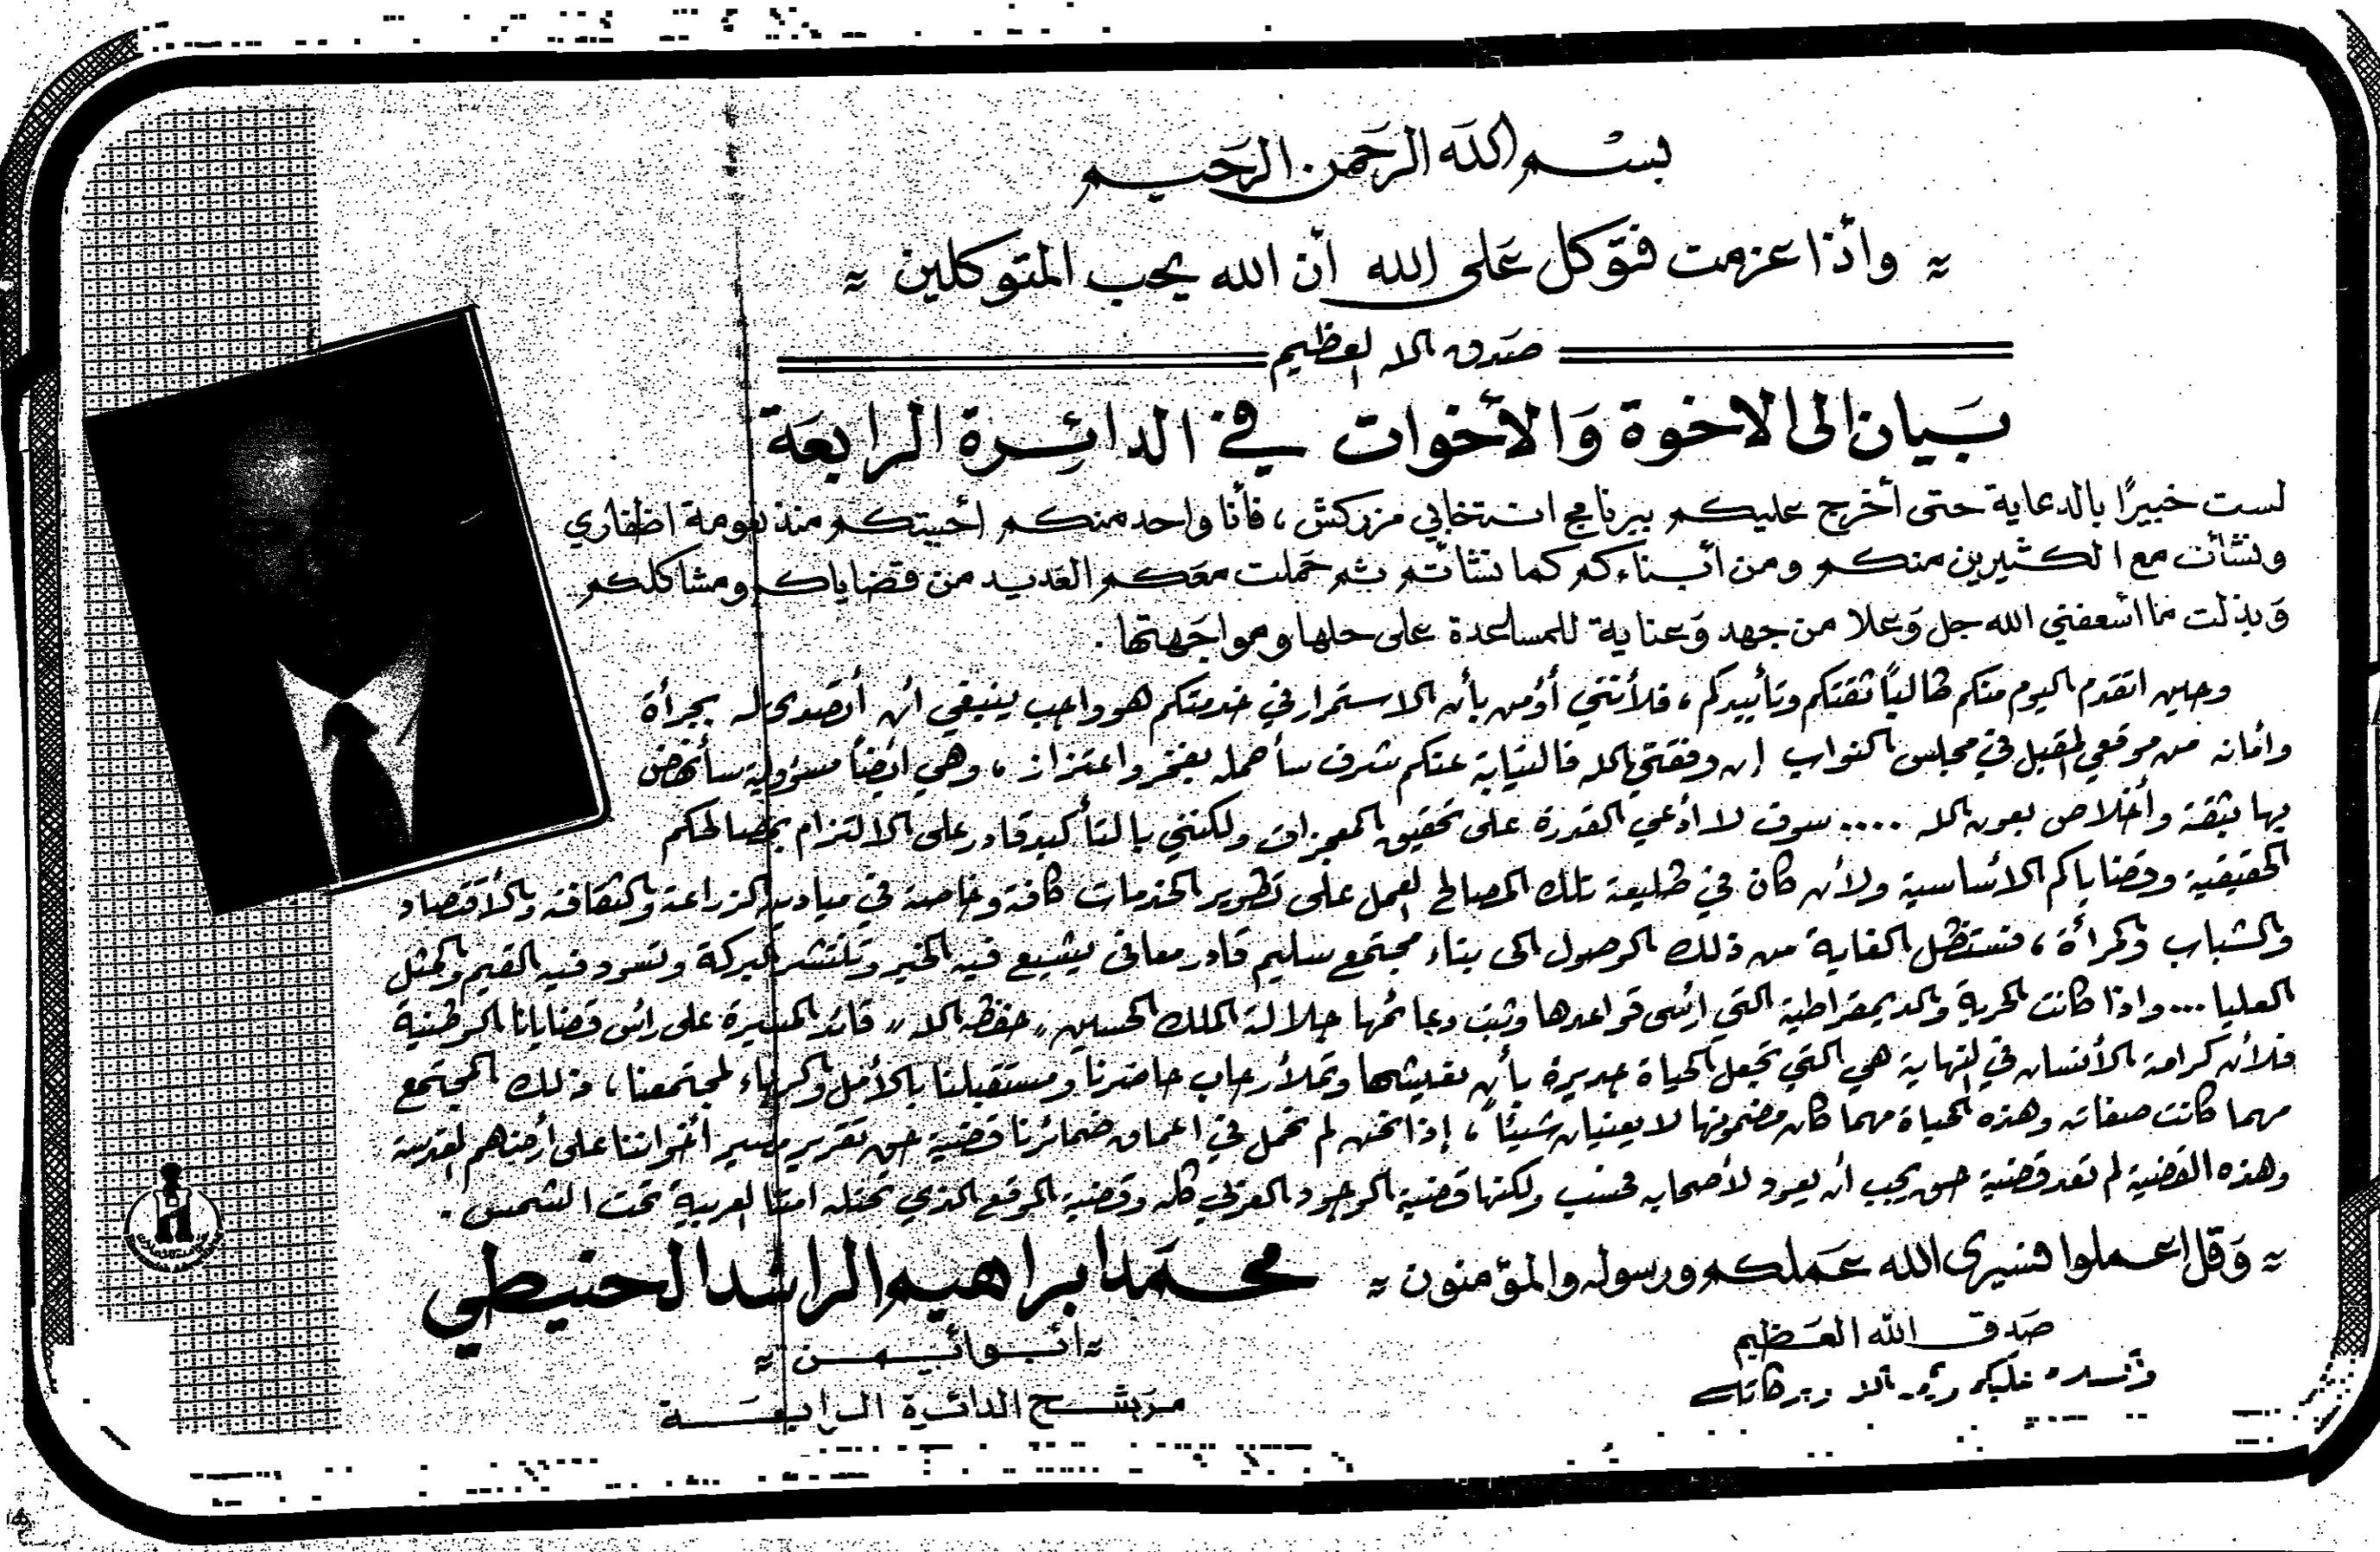 بسم الله الرحمن الرحيم
" وأذا عزمت فتوكل على الله أن الله يحب المتوكلين "
صدق الله العظيم
بيان الى الاخوة والأخوات في الدائرة الرابعة
لست خبيرًا بالدعاية حتى أخرج عليكم ببرنامج انتخابي مزركش، فأنا واحد منكم أحببتكم منذ نعومة اظفاري
ونشأت مع الكثيرين منكم ومن أبناءكم كما نشأتم ثم حملت معكم العديد من قضاياكم ومشاكلكم
وبذلت مما أسعفني الله جل وعلا من جهد وعناية للمساعدة على حلها ومواجهتها .
وحين اتقدم اليوم منكم طالباً ثقتكم وتأييدكم، فلأنني أؤمن بأن الاستمرار في خدمتكم هو واجب ينبغي أن أتصدى له بجرأة
وامانه من موقعي المقبل في مجلس النواب إن وفقني الله فالنيابة عنكم شرف سأحمله بفخر واعتزاز، وهي ايضاً مسؤولية سأنهض
بها بثقة وأخلاص بعون الله .... سوف لا ادعي القدرة على تحقيق المعجزات ولكنني بالتأكيد قادر على الالتزام بمصالحكم
الحقيقية وقضاياكم الأساسية ولأن كان في طليعة تلك المصالح العمل على تطوير الخدمات كافة وخاصة في ميادين الزراعة والثقافة والأقتصاد
والشباب والمرأة، فستظل الغاية من ذلك الوصول الى بناء مجتمع سليم قادر معافى يشيع فيه الخير وتنتشر البركة وتسود فيه القيم والمثل
العليا ... واذا كانت الحرية والديمقراطية التي ارسى قواعدها وثبت دعائمها جلالة الملك الحسين " حفظه الله " قائد المسيرة على رأس قضايانا الوطنية
فلأن كرامة الأنسان في النهاية هي التي تجعل الحياة جديرة بأن نعيشها وتملأ رحاب حاضرنا ومستقبلنا بالأمل والرجاء لمجتمعنا، ذلك المجتمع
مهما كانت صفاته وهذه الحياة مهما كان مضمونها لا يعنيان شيئاً، إذا نحن لم نحمل في اعماق ضمائرنا قضية حق تقرير مصير أخواننا على أرضهم المقدسة
وهذه القضية لم تعد قضية حق يجب أن يعود لأصحابه فحسب ولكنها قضية الوجود العربي كله وقضية الموقع الذي تحتله امتنا العربية تحت الشمس .
" وقل اعملوا فسيرى الله عملكم ورسوله والمؤمنون "
صدق الله العظيم
والسلام عليكم ورحمة الله وبركاته
محمد ابراهيم الراشد الحنيطي
" أبو أيمن "
مرشح الدائرة الرابعة